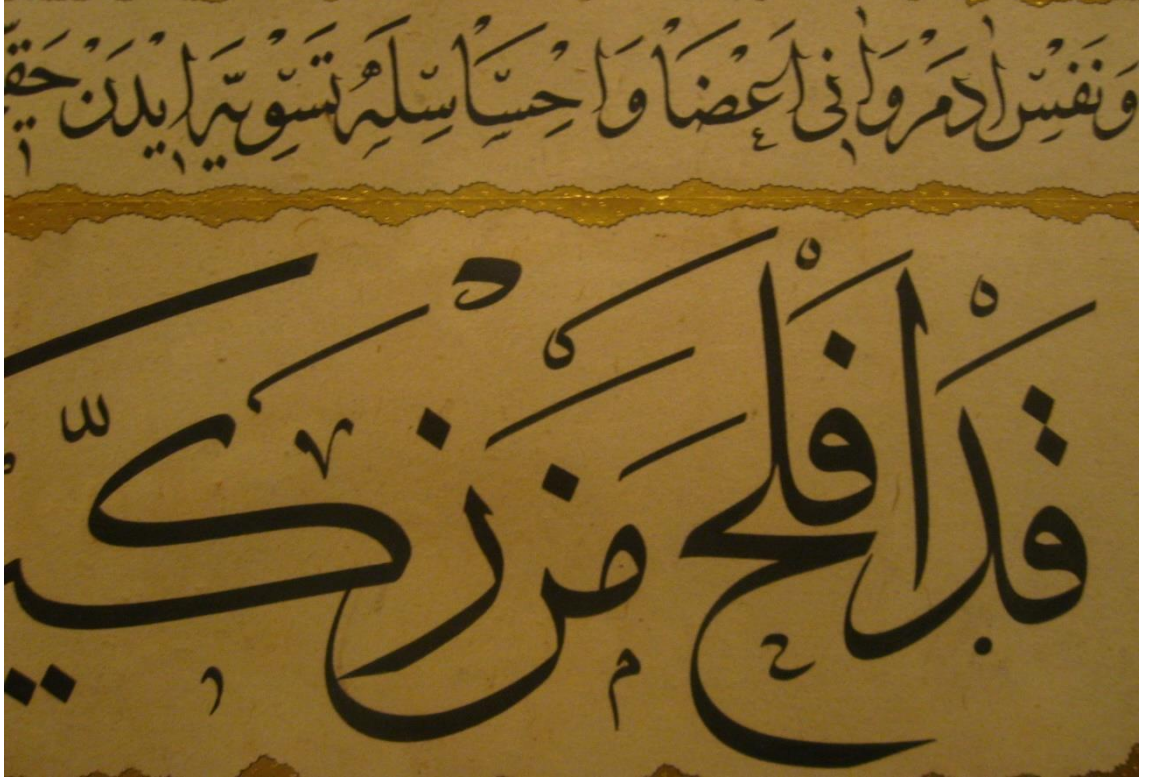 وَنَفْسِ اٰدَمْ وَاٰنِى اَعْضَا وَاِحْسَاسِلَهْ تَسْوِيَهْ اِيدَنْ
قَدْ اَفْلَحَ مَنْ زَكّٰي